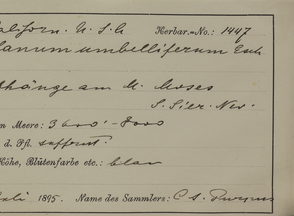 aliforn. U. S. A Herbar.-No.: 1447
lanum umbelliferum Esch
hänge am M. Moses
S. Sier. Nev.
n Meere: 3600'-8000
d. Pfl. suffrut.
Höhe, Blütenfarbe etc.: blau
li 1895. Name des Sammlers: C. A. Purpus